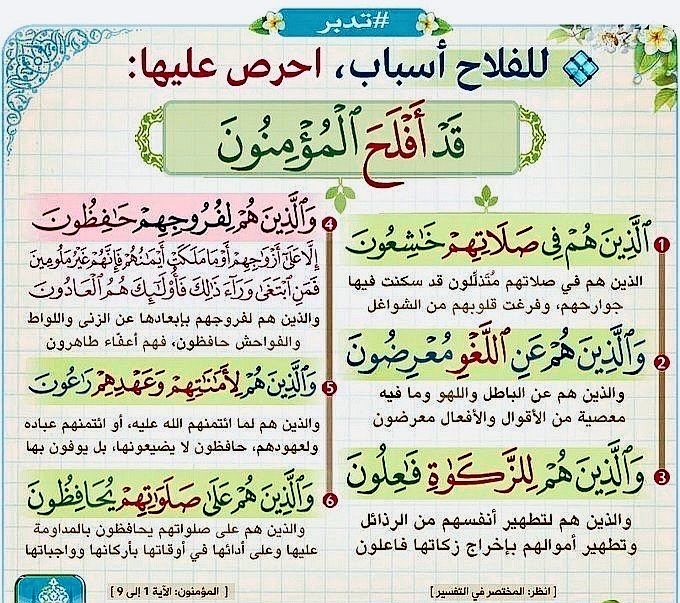 #تدبر
للفلاح أسباب، احرص عليها:
قَدْ أَفْلَحَ ٱلْمُؤْمِنُونَ
1 ٱلَّذِينَ هُمْ فِى صَلَاتِهِمْ خَٰشِعُونَ
الذين هم في صلاتهم مُتَذلِّلون قد سكنت فيها
جوارحهم، وفرغت قلوبهم من الشواغل
2 وَٱلَّذِينَ هُمْ عَنِ ٱللَّغْوِ مُعْرِضُونَ
والذين هم عن الباطل واللهو وما فيه
معصية من الأقوال والأفعال معرضون
3 وَٱلَّذِينَ هُمْ لِلزَّكَوٰةِ فَٰعِلُونَ
والذين هم لتطهير أنفسهم من الرذائل
وتطهير أموالهم بإخراج زكاتها فاعلون
4 وَٱلَّذِينَ هُمْ لِفُرُوجِهِمْ حَٰفِظُونَ
إِلَّا عَلَىٰٓ أَزْوَٰجِهِمْ أَوْ مَا مَلَكَتْ أَيْمَٰنُهُمْ فَإِنَّهُمْ غَيْرُ مَلُومِينَ
فَمَنِ ٱبْتَغَىٰ وَرَآءَ ذَٰلِكَ فَأُو۟لَٰٓئِكَ هُمُ ٱلْعَادُونَ
والذين هم لفروجهم بإبعادها عن الزنى واللواط
والفواحش حافظون، فهم أعفّاء طاهرون
5 وَٱلَّذِينَ هُمْ لِأَمَٰنَٰتِهِمْ وَعَهْدِهِمْ رَٰعُونَ
والذين هم لما ائتمنهم الله عليه، أو ائتمنهم عباده
ولعهودهم، حافظون لا يضيعونها، بل يوفون بها
6 وَٱلَّذِينَ هُمْ عَلَىٰ صَلَوَٰتِهِمْ يُحَافِظُونَ
والذين هم على صلواتهم يحافظون بالمداومة
عليها وعلى أدائها في أوقاتها بأركانها وواجباتها
[ انظر: المختصر في التفسير ]
[ المؤمنون: الآية 1 إلى 9 ]